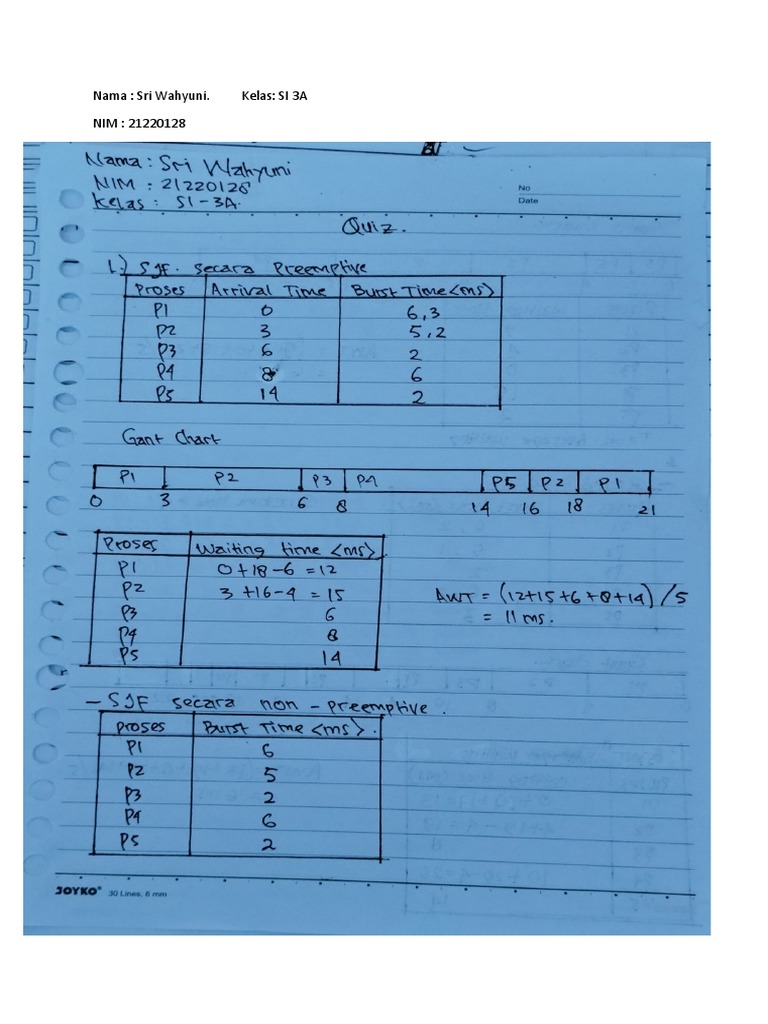 Nama : Sri Wahyuni. Kelas: SI 3A
NIM : 21220128
Nama : Sri Wahyuni
NIM : 21220128
Kelas : SI - 3A.
No
Date
Quiz.
1.) SJF. secara Preemptive
Proses Arrival Time Burst Time <ms>
P1 0 6,3
P2 3 5,2
P3 6 2
P4 8 6
P5 14 2
Gant chart
P1 P2 P3 P4 P5 P2 P1
0 3 6 8 14 16 18 21
Proses Waiting time <ms>
P1 0+18-6 = 12
P2 3+16-4 = 15
P3 6
P4 8
P5 14
AWT = (12+15+6+8+14)/5
= 11 ms.
- SJF secara non - preemptive.
Proses Burst Time <ms>.
P1 6
P2 5
P3 2
P4 6
P5 2
JOYKO® 30 Lines, 6 mm